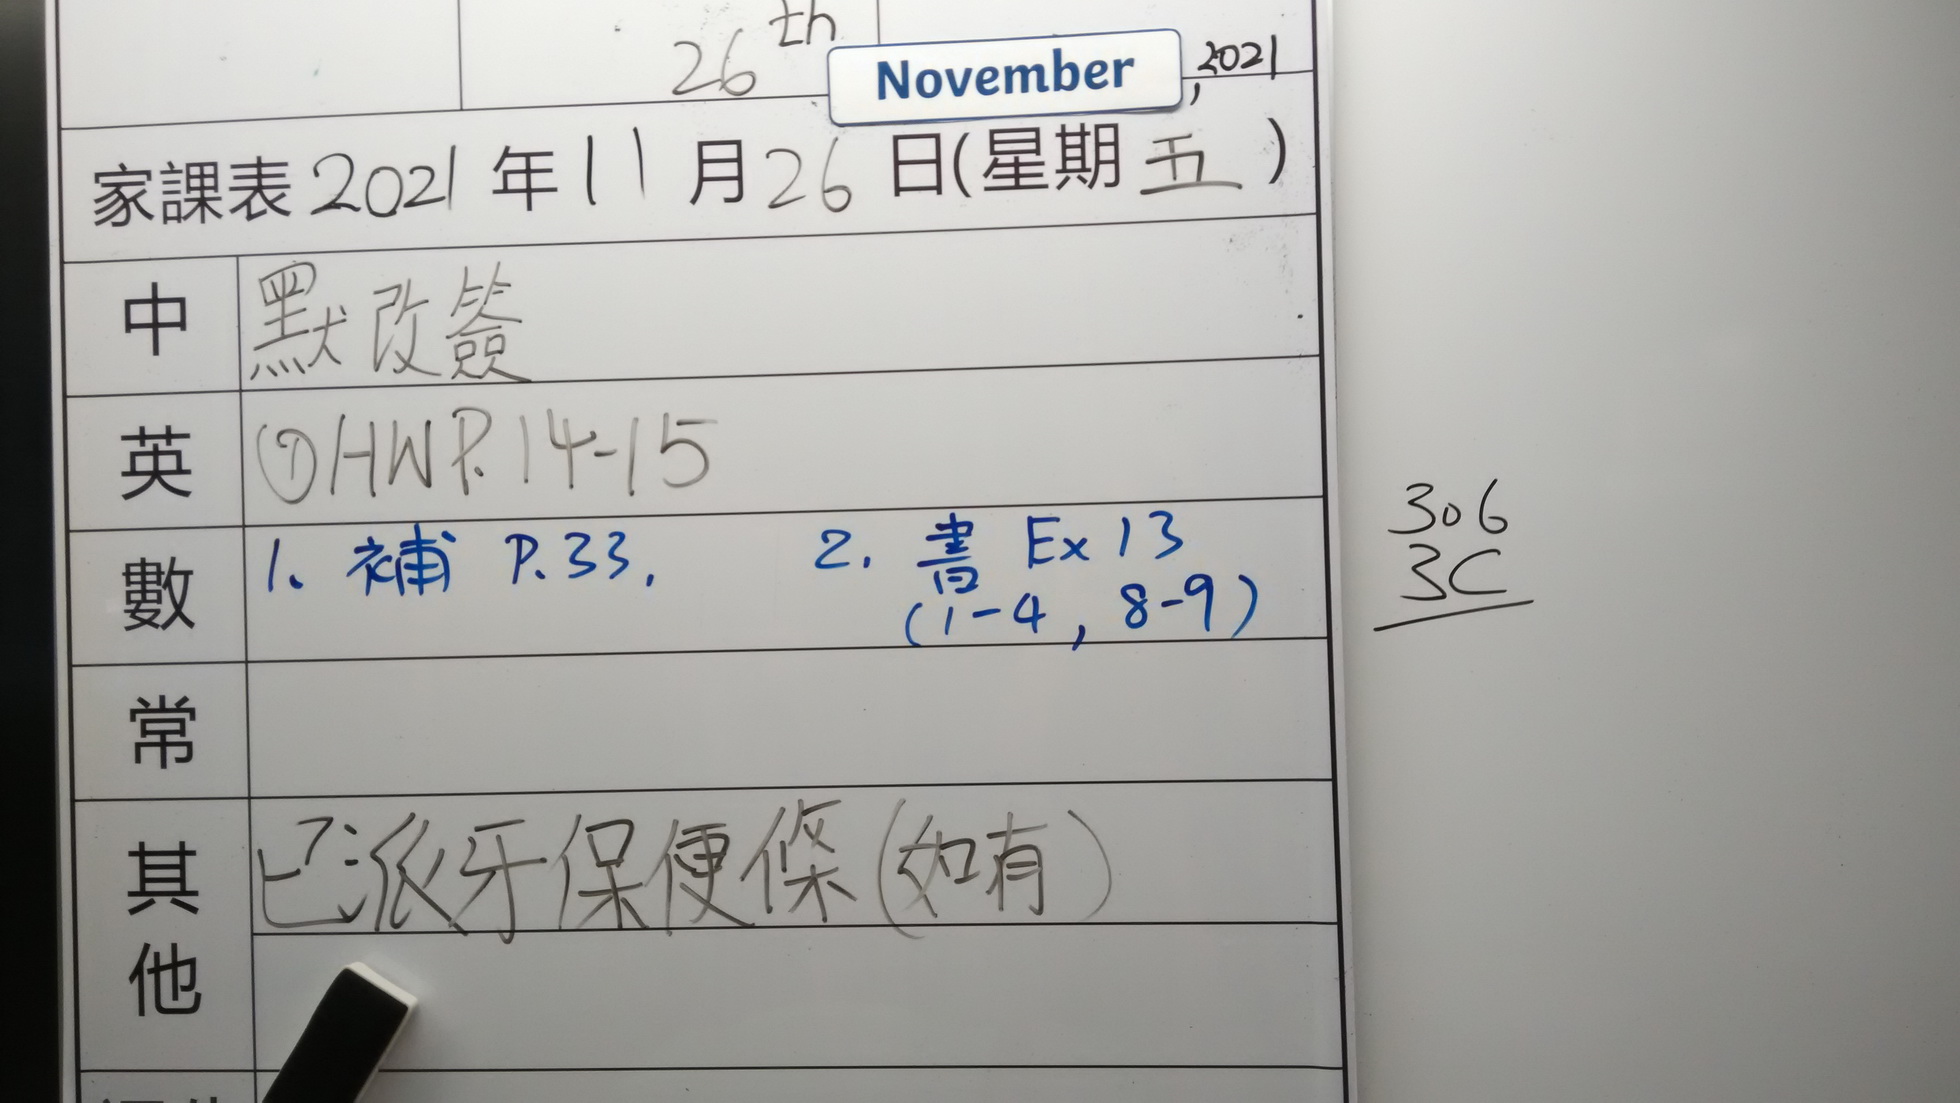 26th November, 2021
家課表 2021 年 11 月 26 日(星期 五 )
中 默改簽
英 ①HW P.14-15
數 1. 補 P.33. 2. 書 Ex 13
(1-4, 8-9)
306
3C
常
其他 已派牙保便條(如有)